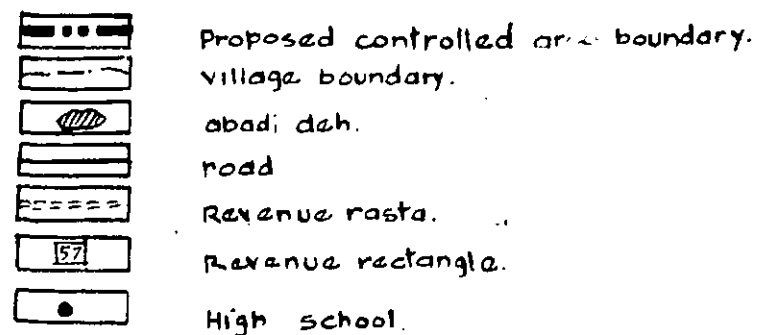 Proposed controlled boundary.
village boundary.
abadi deh.
road
Revenue rasta.
57
Revenue rectangle.
High school.